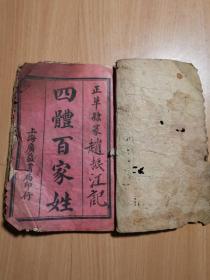 正草隸篆趙振江記
四體百家姓
上海廣益書局印行